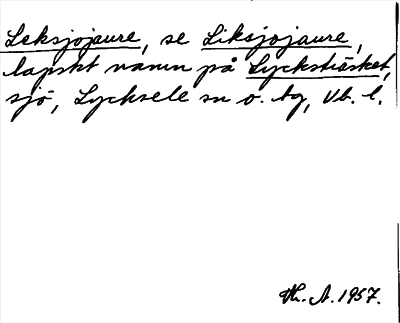 Leksjojaure, se Liksjojaure,
lapskt namn på Lycksträsket,
sjö, Lycksele sn o. tg, Vb. l.
Th. A. 1957.